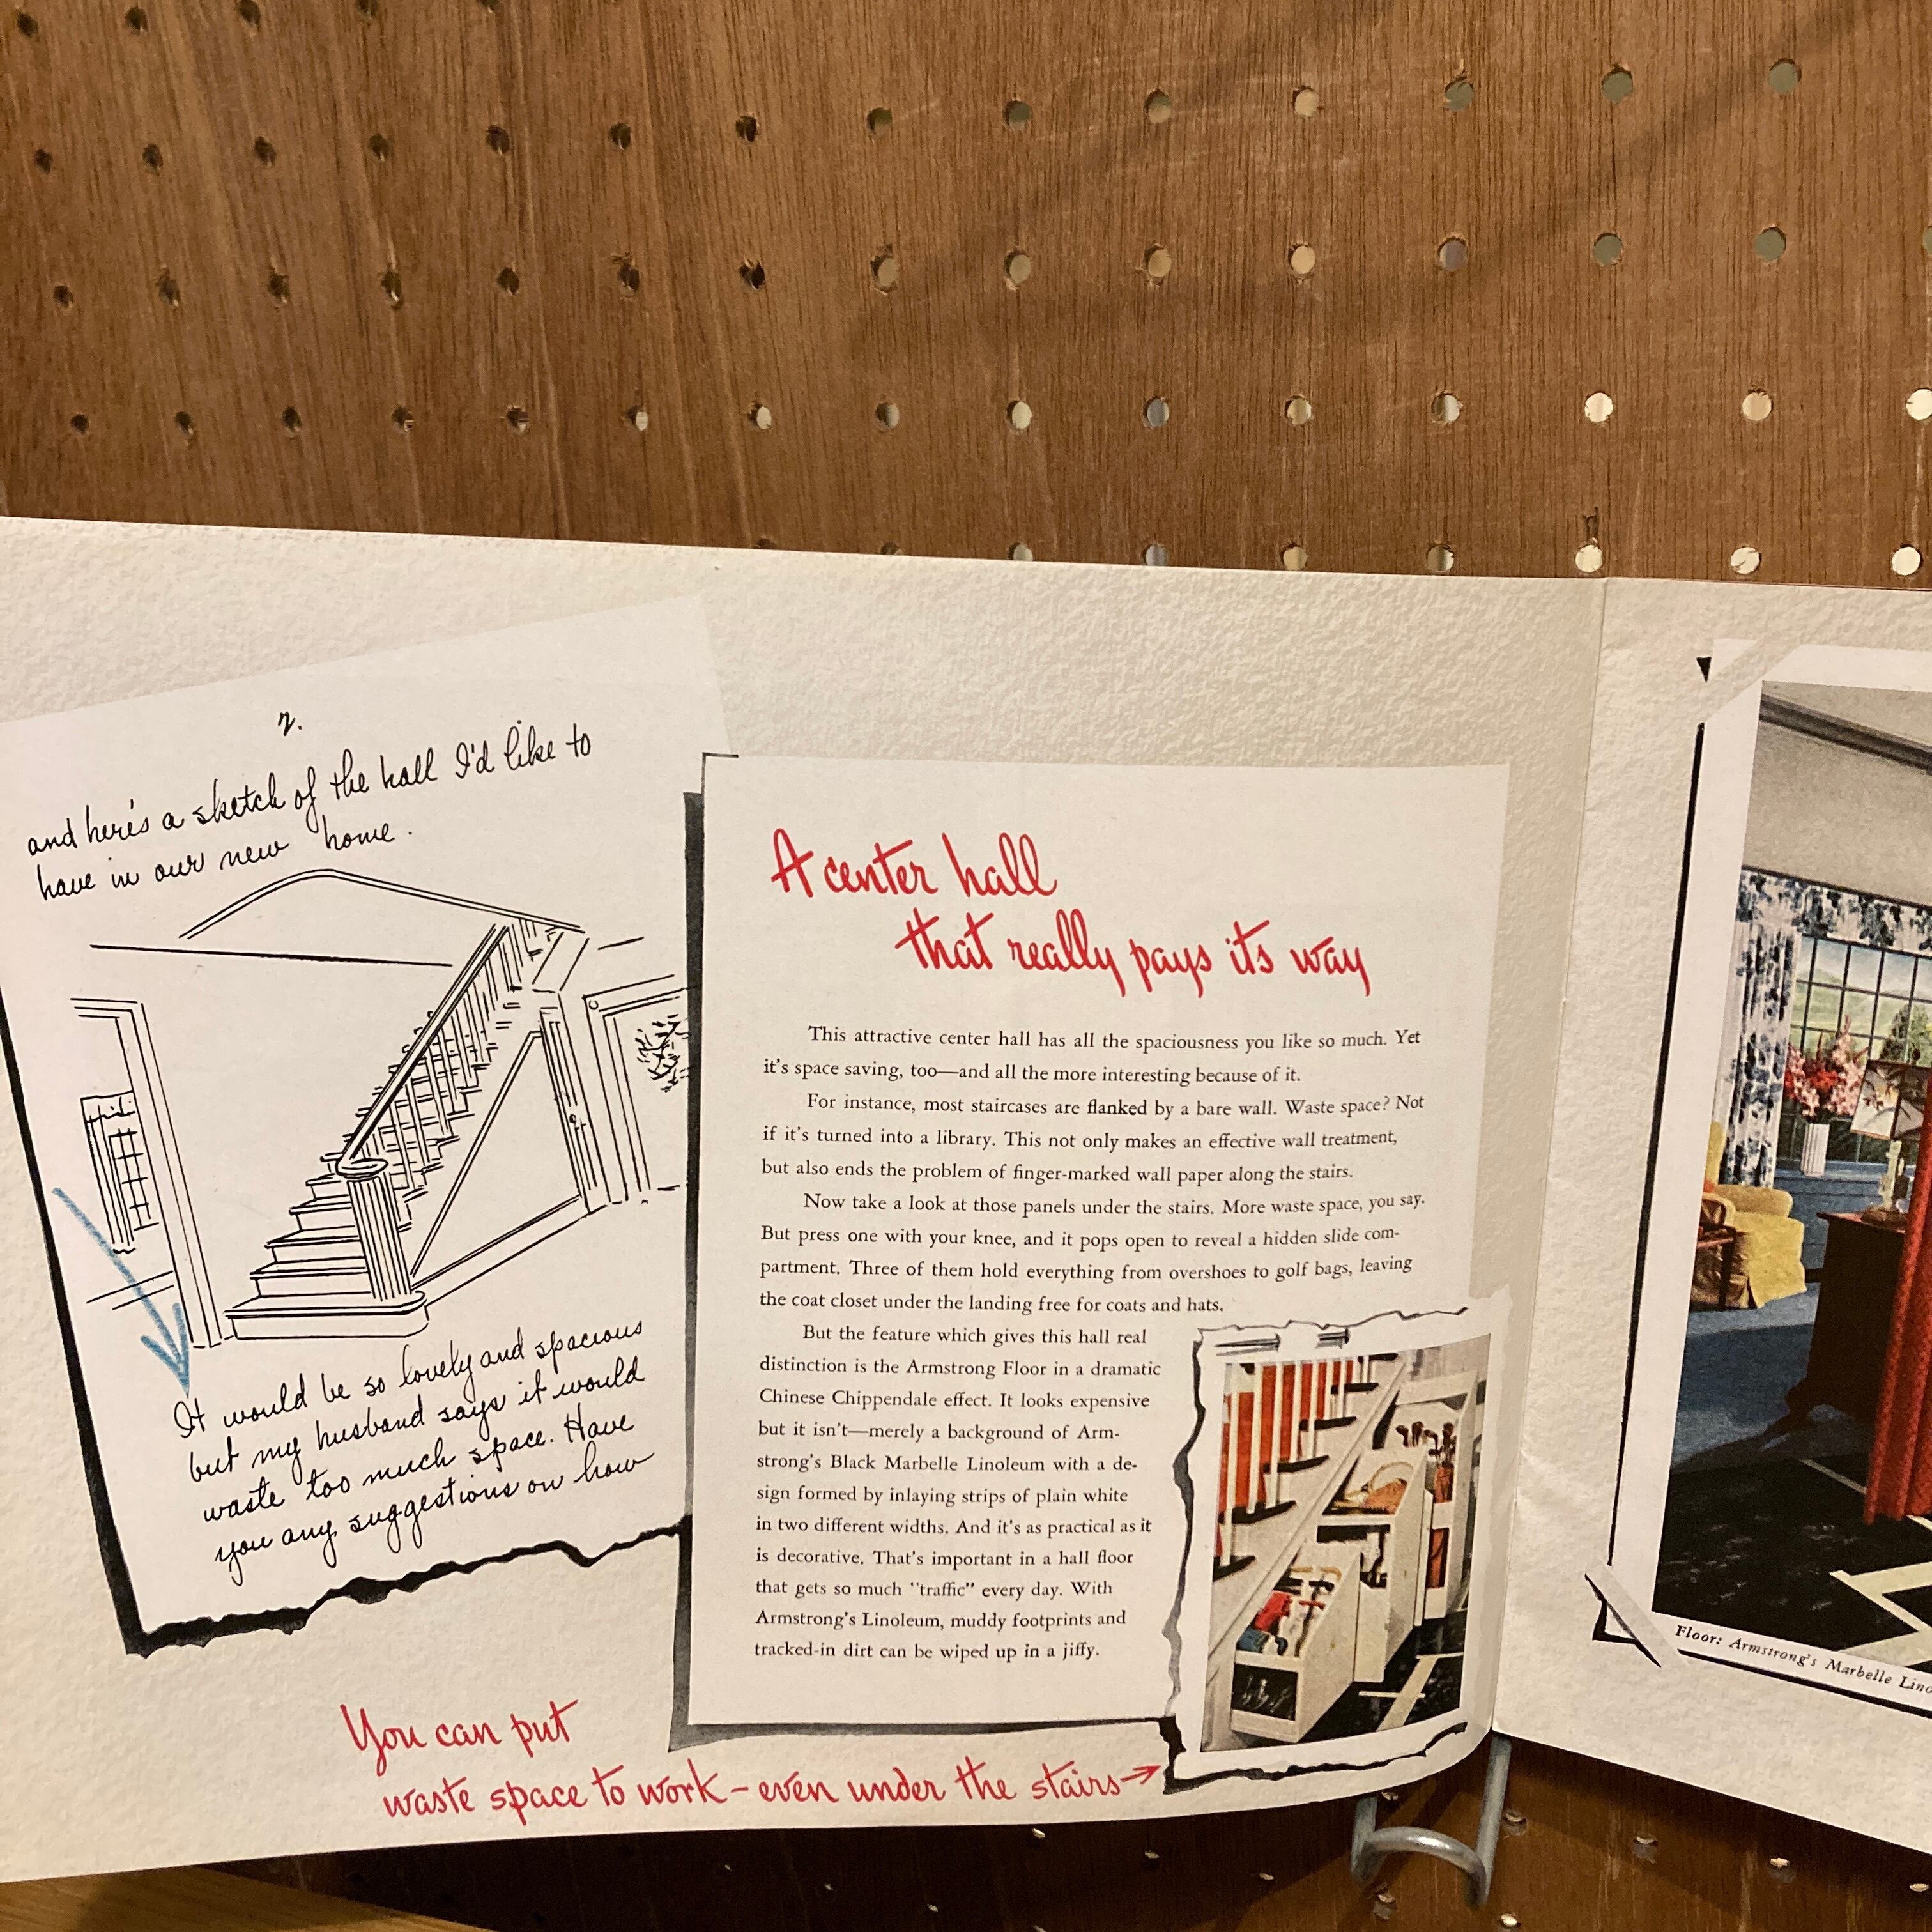 2.
and here's a sketch of the hall I'd like to
have in our new home.
It would be so lovely and spacious
but my husband says it would
waste too much space. Have
you any suggestions on how
A center hall
that really pays its way
This attractive center hall has all the spaciousness you like so much. Yet
it's space saving, too—and all the more interesting because of it.
For instance, most staircases are flanked by a bare wall. Waste space? Not
if it's turned into a library. This not only makes an effective wall treatment,
but also ends the problem of finger-marked wall paper along the stairs.
Now take a look at those panels under the stairs. More waste space, you say.
But press one with your knee, and it pops open to reveal a hidden slide com-
partment. Three of them hold everything from overshoes to golf bags, leaving
the coat closet under the landing free for coats and hats.
But the feature which gives this hall real
distinction is the Armstrong Floor in a dramatic
Chinese Chippendale effect. It looks expensive
but it isn't—merely a background of Arm-
strong's Black Marbelle Linoleum with a de-
sign formed by inlaying strips of plain white
in two different widths. And it's as practical as it
is decorative. That's important in a hall floor
that gets so much "traffic" every day. With
Armstrong's Linoleum, muddy footprints and
tracked-in dirt can be wiped up in a jiffy.
You can put
waste space to work – even under the stairs→
Floor: Armstrong's Marbelle Lino